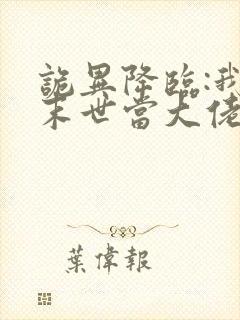 詭異降臨:我
末世當大佬
葉偉報